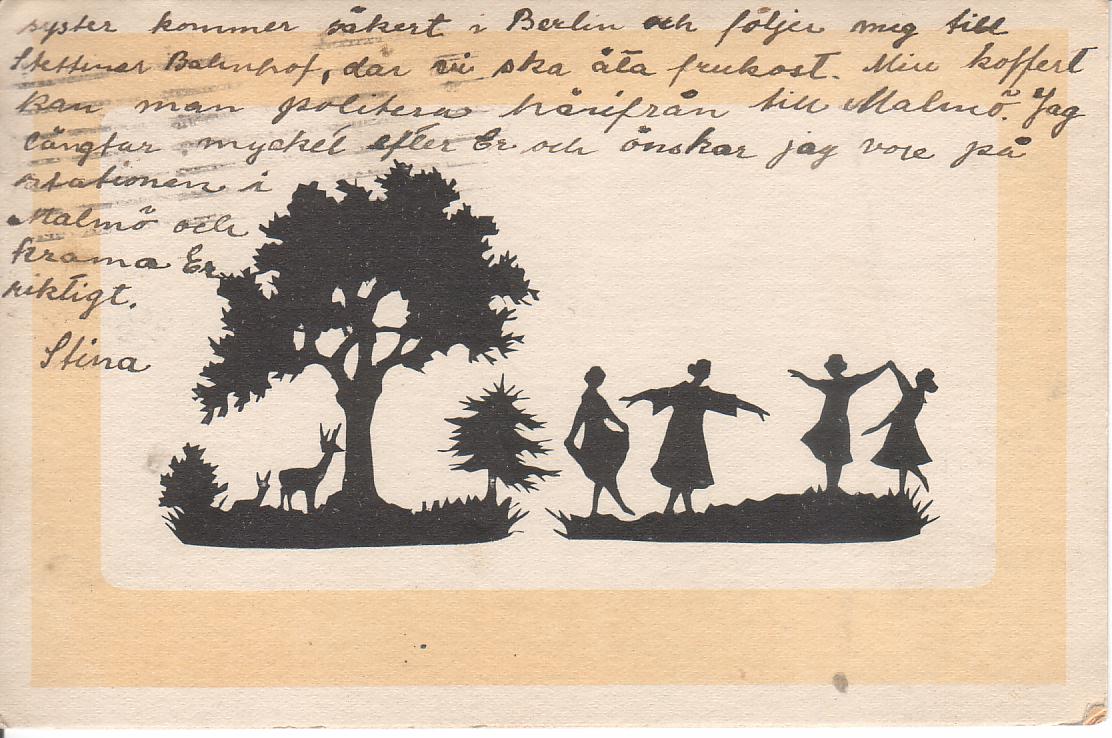 syster kommer säkert i Berlin och följer meg till
Stettiner Bahnhof, där vi ska äta frukost. Min koffert
kan man politera härifrån till Malmö. Jag
längtar mycket efter Er och önskar jag vore på
stationen i
Malmö och
krama Er
riktigt.
Stina